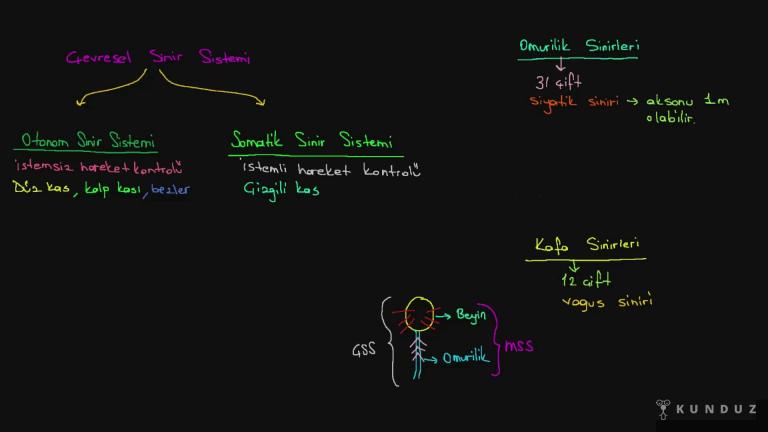 Çevresel Sinir Sistemi
Otonom Sinir Sistemi
istemsiz hareket kontrolü
Düz kas, kalp kası, bezler
Somatik Sinir Sistemi
istemli hareket kontrolü
Çizgili kas
Omurilik Sinirleri
31 çift
siyatik siniri → aksonu 1m
olabilir.
Kafa Sinirleri
12 çift
vagus siniri
ÇSS
Beyin
Omurilik
MSS
KUNDUZ